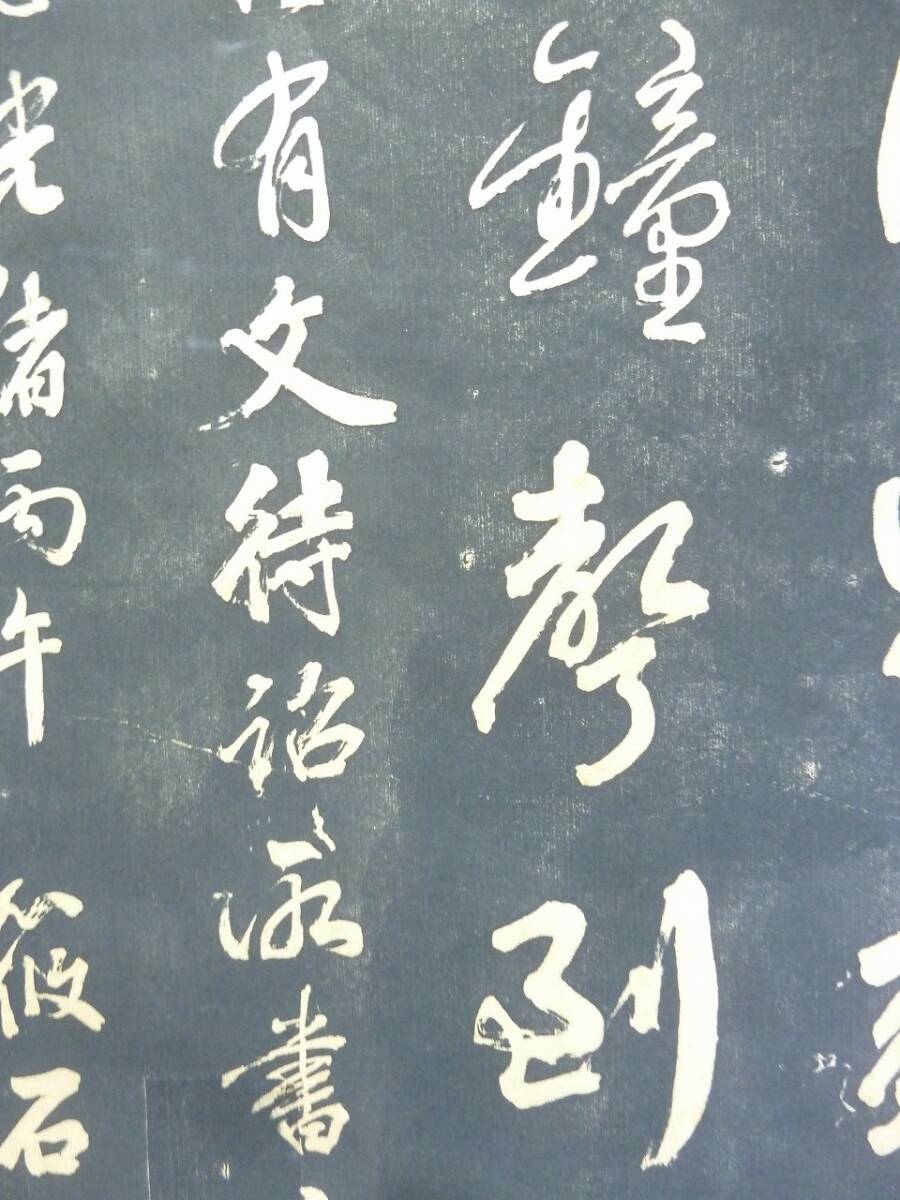 鐘聲到
有文待詔詠書
光緒丙午 筱石